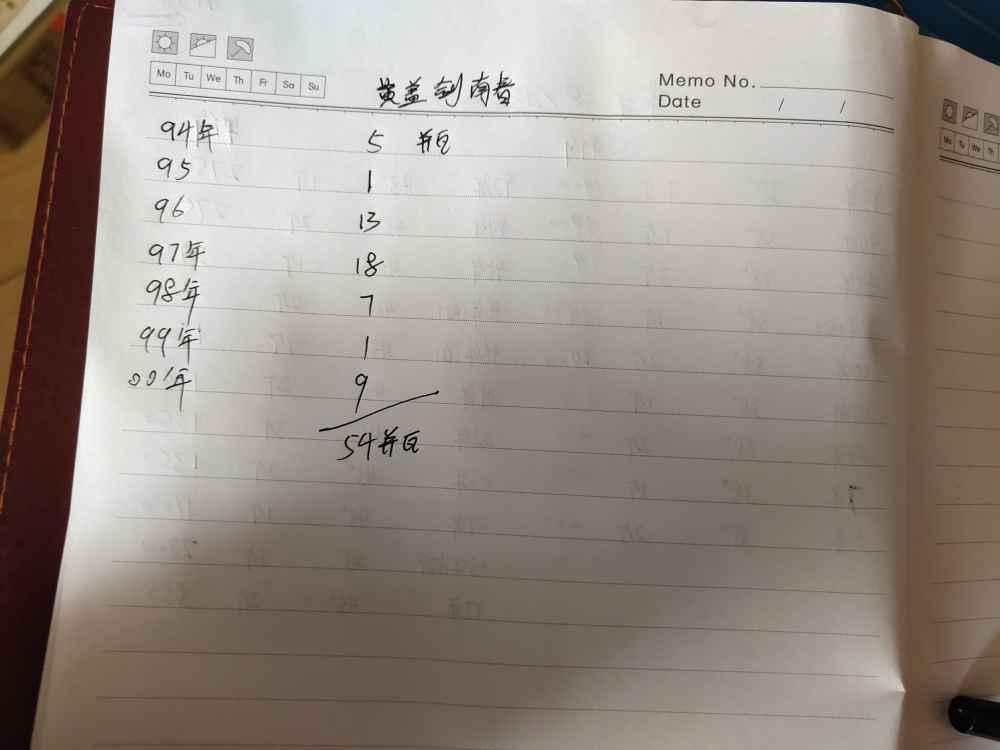 Mo Tu We Th Fr Sa Su
黄盖剑南春
Memo No.
Date / /
94年 5 瓶
95 1
96 13
97年 18
98年 7
99年 1
00年 9
54瓶
Mo Tu We Th